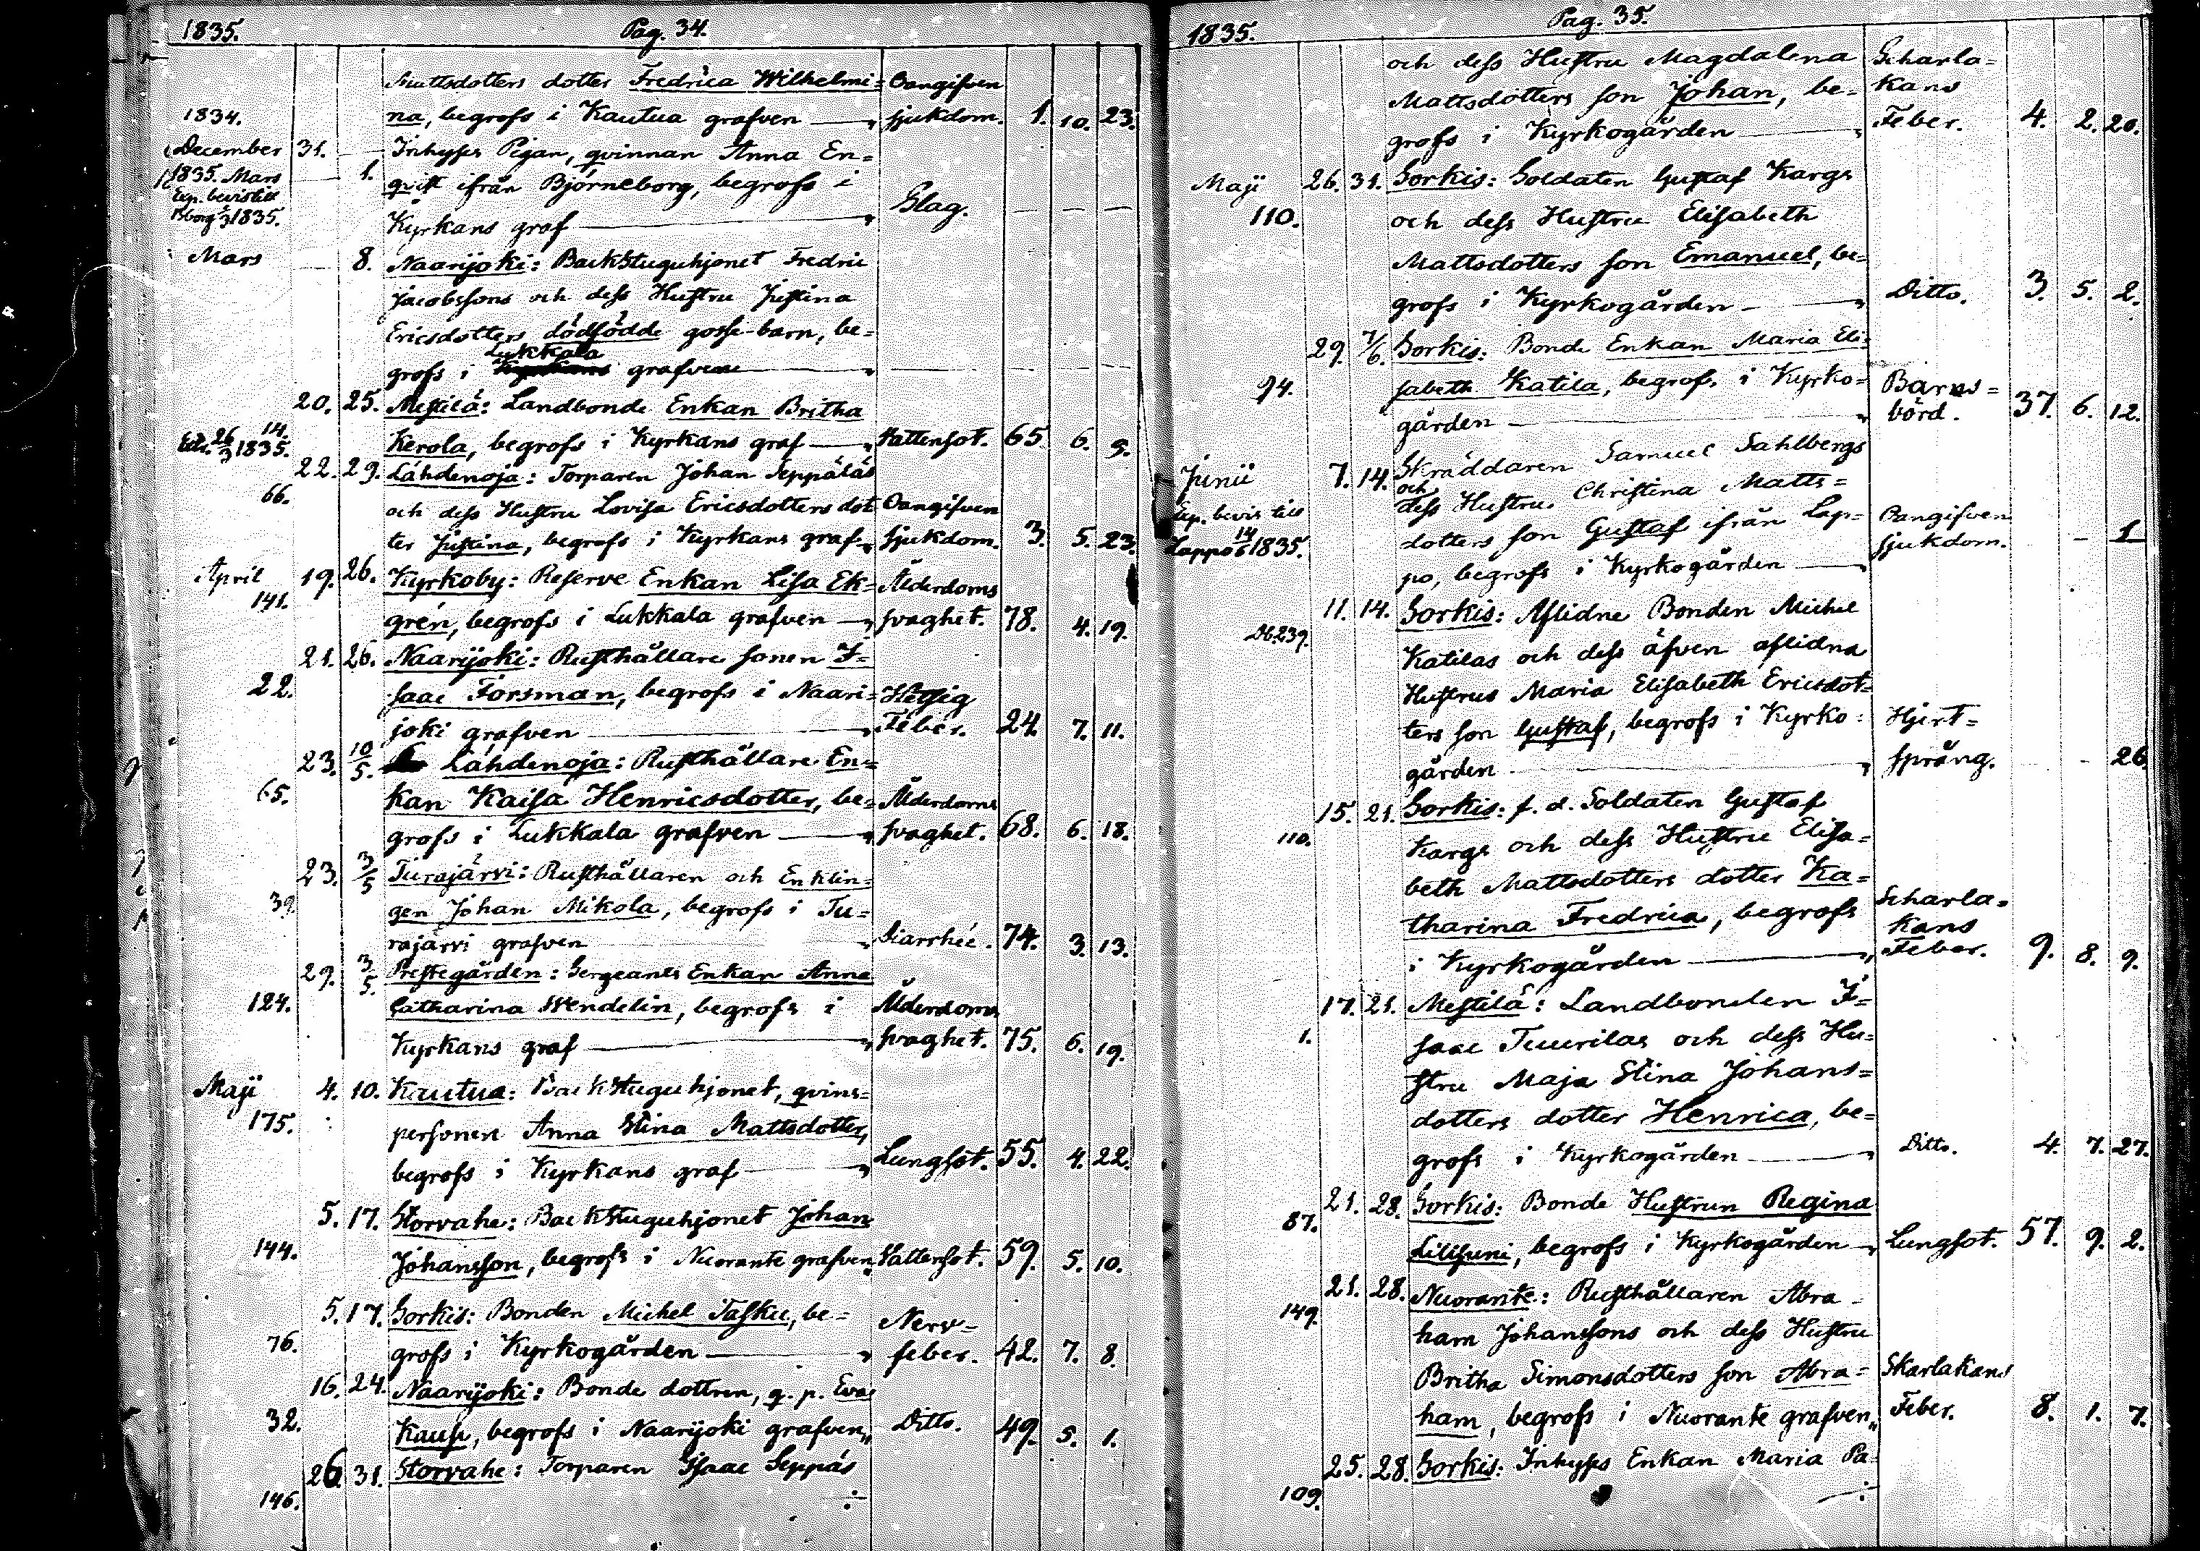 1835. Pag. 34.
Mattsdotters dotter Fredrica Wilhelmi= Oangifven
1834. na, begrofs i Kautua grafven — sjukdom. 1. 10. 23.
December 31. Inhyses Pigan, qvinnan Anna En=
1835. Mars 1. qvist ifrån Björneborg, begrofs i
Exp. bevis till
Bborg 1835. Kyrkans graf — Slag. — — —
Mars 8. Naarijoki: Backstuguhjonet Fredric
Jacobssons och dess Hustru Justina
Ericsdotters dödfödde gosse-barn, be=
Lukkala
grofs i grafven —
20. 25. Mestilä: Landbonde Enkan Britha
14.
26/3 1835. Kerola, begrofs i Kyrkans graf — Vattensot. 65 6. 9.
22. 29. Lähdenoja: Torparen Johan Seppäläs
66. och dess Hustru Lovisa Ericsdotters dot Oangifven
ter Justina, begrofs i Kyrkans graf — sjukdom. 3. 5. 23.
April 19. 26. Kyrkoby: Reserve Enkan Lisa Ek= Ålderdoms
141. grén, begrofs i Lukkala grafven — svaghet. 78. 4. 19.
21. 26. Naarijoki: Rusthållare sonen I=
22. saac Forsman, begrofs i Naari= Hetsig
joki grafven — Feber. 24. 7. 11.
23. 10/5. Lähdenoja: Rusthållare En=
65. kan Kaisa Henricsdotter, be= Ålderdoms
grofs i Lukkala grafven — svaghet. 68. 6. 18.
23. 3/5 Turajärvi: Rusthållaren och Enklin=
39. gen Johan Mikola, begrofs i Tu=
rajärvi grafven — Diarrhée. 74. 3. 13.
29. 3/5. Prestegården: Sergeants Enkan Anna
124. Catharina Wendelin, begrofs i Ålderdoms
Kyrkans graf — svaghet. 75. 6. 19.
Maji 4. 10. Kautua: Backstuguhjonet, qvins=
175. personen Anna Stina Mattsdotter,
begrofs i Kyrkans graf — Lungsot. 55. 4. 22.
5. 17. Storvahe: Backstuguhjonet Johan
144. Johansson, begrofs i Nuorante grafven Vattensot. 59. 5. 10.
5. 17. Sorkis: Bonden Michel Tasku, be= Nerv=
76. grofs i Kyrkogården — feber. 42. 7. 8.
16. 24. Naarijoki: Bonde dottren, q. p. Eva
32. Kaup, begrofs i Naarijoki grafven, Ditto. 49. 5. 1.
26 31. Storvahe: Torparen Isaac Seppäs
146.
1835. Pag. 35.
och dess Hustru Magdalena Scharla=
Mattsdotters son Johan, be= kans
grofs i Kyrkogården — Feber. 4. 2. 20.
Maji 26. 31. Sorkis: Soldaten Gustaf Kargs
110. och dess Hustru Elisabeth
Mattsdotters son Emanuel, be=
grofs i Kyrkogården — Ditto. 3. 5. 2.
29. 7/6. Sorkis: Bonde Enkan Maria Eli=
94. sabeth Katila, begrofs i Kyrko= Barns=
gården — börd. 37. 6. 12.
Junii 7. 14. Skräddaren Samuel Sahlbergs
och
Exp. bevis till dess Hustru Christina Matts=
Lappo 14/6 1835. dotters son Gustaf ifrån Lap= Oangifven
po, begrofs i Kyrkogården — sjukdom. - 1
11. 14. Sorkis: Aflidne Bonden Michel
Db.239. Katilas och dess äfven aflidna
Hustrus Maria Elisabeth Ericsdot=
ters son Gustaf, begrofs i Kyrko= Hjert=
gården — språng. - 26
15. 21. Sorkis: f. d. Soldaten Gustaf
110. Kargs och dess Hustru Elisa=
beth Mattsdotters dotter Ka=
tharina Fredrica, begrofs Scharla=
kans
i Kyrkogården — Feber. 9. 8. 9.
17. 21. Mestilä: Landbonden I=
1. saac Tuurilas och dess Hu=
stru Maja Stina Johans=
dotters dotter Henrica, be=
grofs i Kyrkogården — Ditto. 4. 7. 27.
21. 28. Sorkis: Bonde Hustrun Regina
87. Lillsuni, begrofs i Kyrkogården — Lungsot. 57. 9. 2.
21. 28. Nuorante: Rusthållaren Abra=
149. ham Johanssons och dess Hustru
Britha Simonsdotters son Abra= Skarlakans
ham, begrofs i Nuorante grafven,, Feber. 8. 1. 7.
25. 28. Sorkis: Inhyses Enkan Maria Pa=
109.